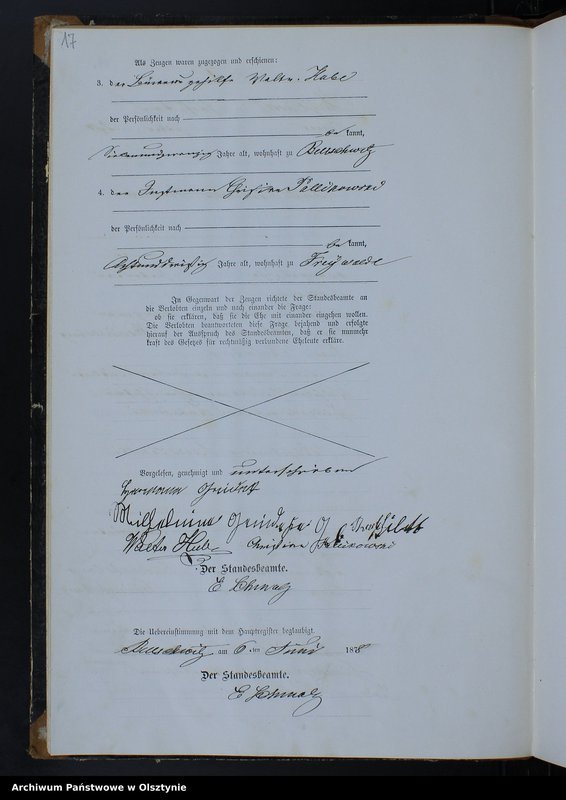 17
Als Zeugen waren zugezogen und erschienen:
3. der Büreaugehilfe Walter Habe
der Persönlichkeit nach
be kannt,
Siebenundzwanzig Jahre alt, wohnhaft zu Bellschwitz
4. der Instmann Christian
der Persönlichkeit nach
be kannt,
Achtunddreißig Jahre alt, wohnhaft zu Freywalde
In Gegenwart der Zeugen richtete der Standesbeamte an
die Verlobten einzeln und nach einander die Frage:
ob sie erklären, daß sie die Ehe mit einander eingehen wollen.
Die Verlobten beantworteten diese Frage bejahend und erfolgte
hierauf der Ausspruch des Standesbeamten, daß er sie nunmehr
kraft des Gesetzes für rechtmäßig verbundene Eheleute erkläre.
Vorgelesen, genehmigt und unterschrieben
Hermann
Wilhelmine
Walter
Der Standesbeamte.
E
Die Uebereinstimmung mit dem Hauptregister beglaubigt.
Bellschwitz am 6 ten Juni 1878
Der Standesbeamte.
E
Archiwum Państwowe w Olsztynie